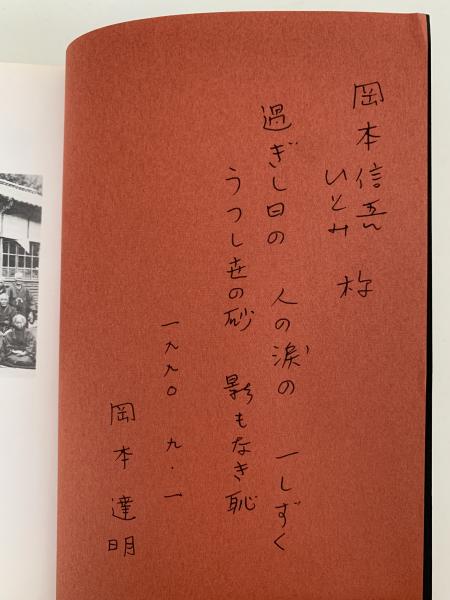 岡本信吾
いとみ 様
過ぎし日の 人の涙の 一しずく
うつし世の砂 影もなき恥
一九九〇 九・一
岡本達明